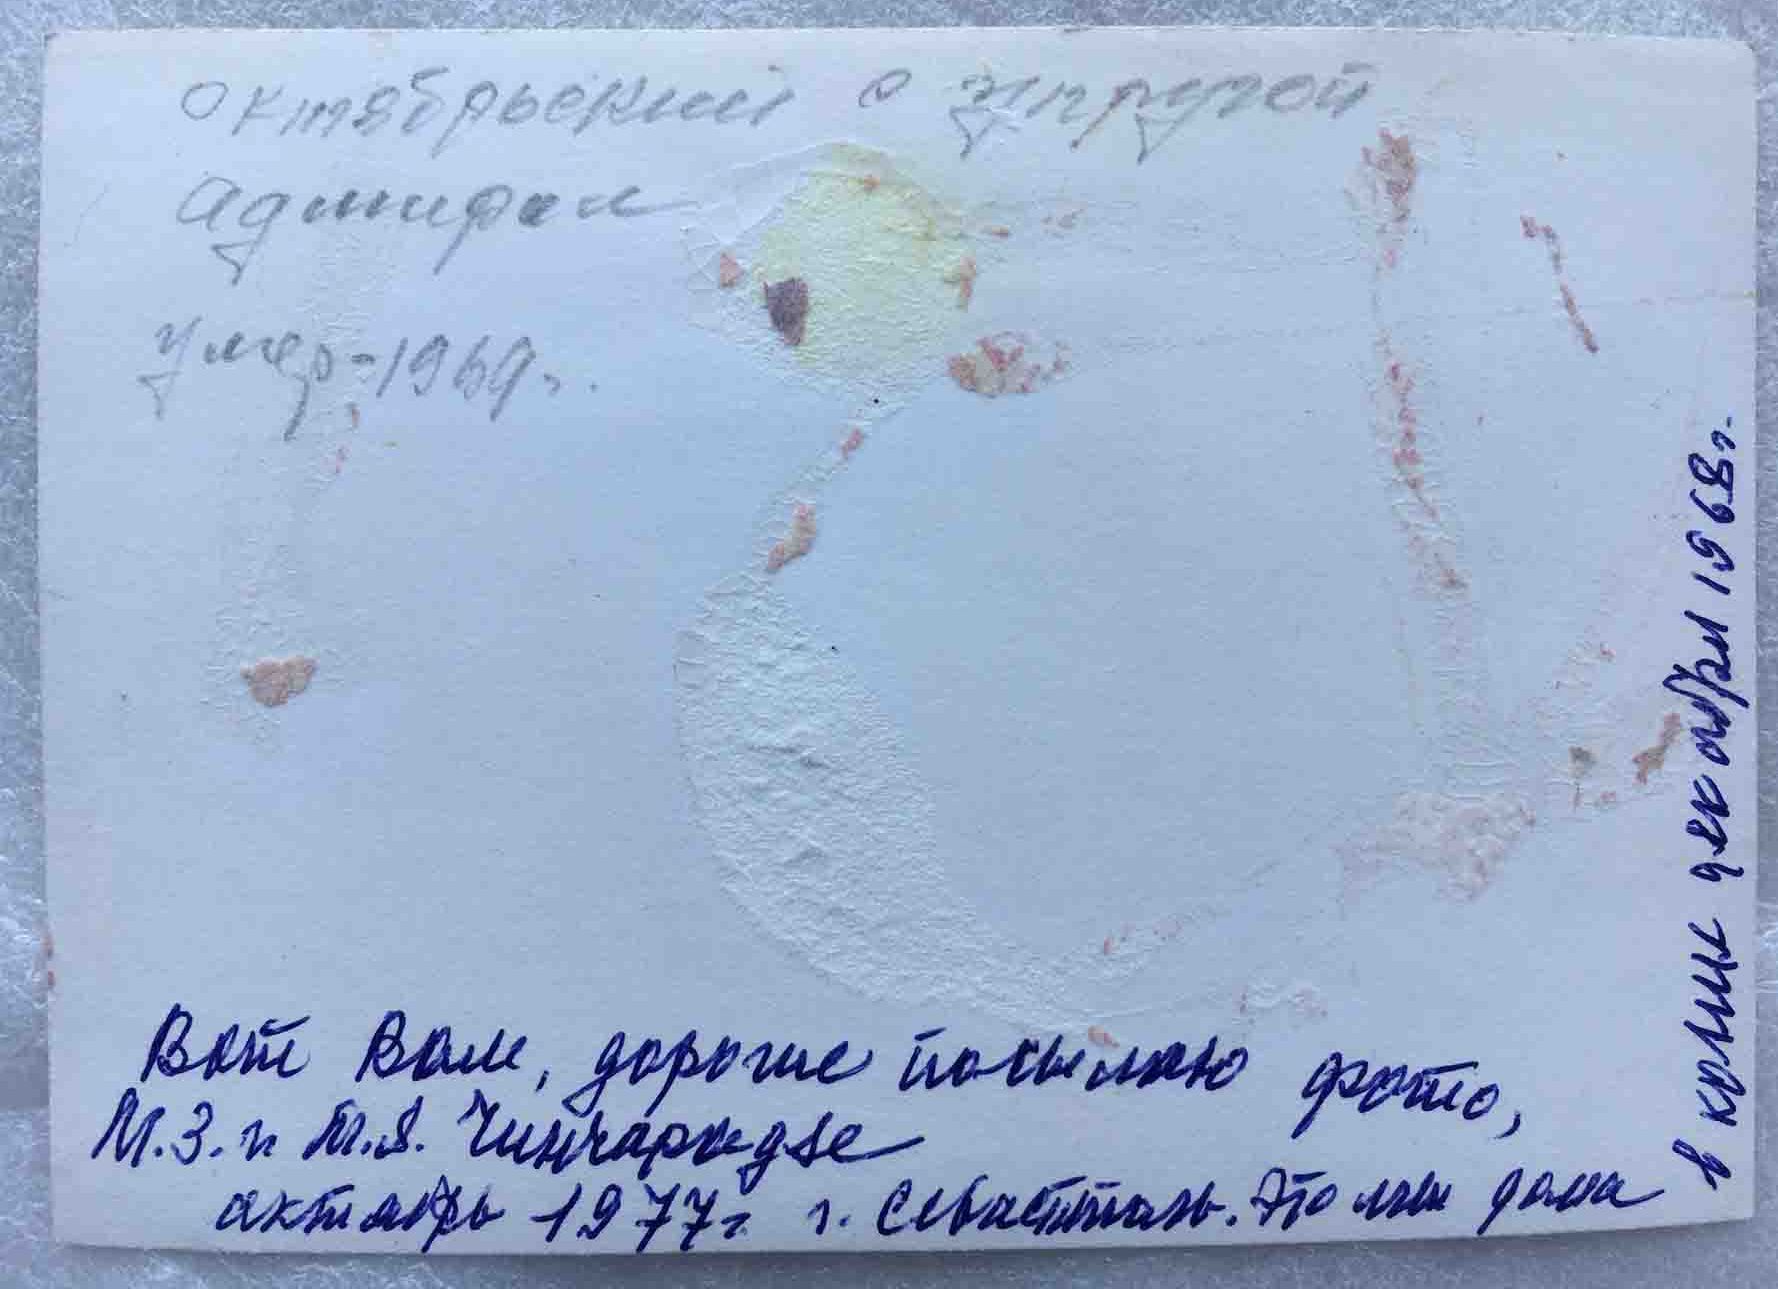 Октябрьский с супругой
адмирал
умер-1969г.
Вот Вам, дорогие посылаю фото,
М.З. и М.Я. Чинчараидзе
октябрь 1977г г. Севастополь. Это мы дома
в конце декабря 1968г.